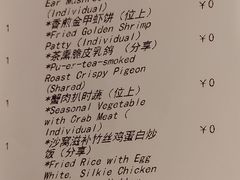 Ear Mushroom
(Individual)
*香煎金甲虾饼（位上） ￥0
1 *Fried Golden Shrimp
Patty (Individual)
*茶熏脆皮乳鸽（分享） ￥0
1 *Pu-er-tea-smoked
Roast Crispy Pigeon
(Shared)
*蟹肉扒时蔬（位上） ￥0
1 *Seasonal Vegetable
with Crab Meat (
Individual)
*沙窝滋补竹丝鸡蛋白炒 ￥0
1 饭（分享）
*Fried Rice with Egg
White, Silkie Chicken